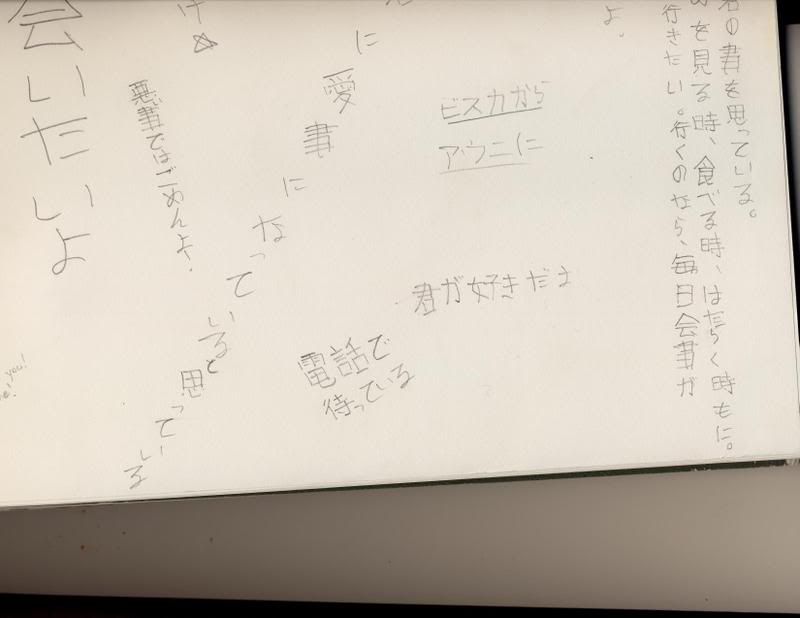 君の事を思っている。
を見る時、食べる時、はたらく時もに。
行きたい。行くのなら、毎日会事が
よ。
ビスカから
アウニに
君が好きだよ
電話で
待っている
に愛事になっていると思っている
け
悪事ではごめんよ。
会いたいよ
you!